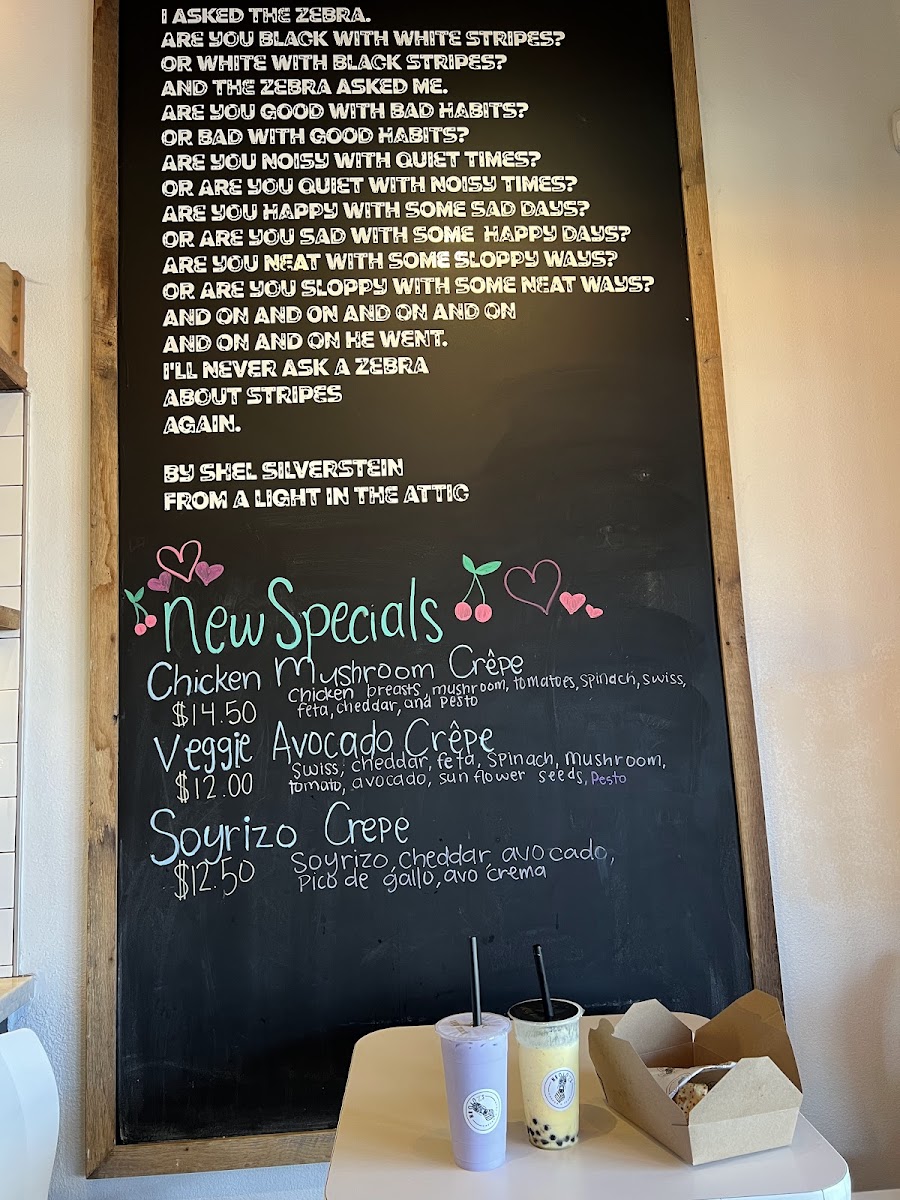 I ASKED THE ZEBRA.
ARE YOU BLACK WITH WHITE STRIPES?
OR WHITE WITH BLACK STRIPES?
AND THE ZEBRA ASKED ME.
ARE YOU GOOD WITH BAD HABITS?
OR BAD WITH GOOD HABITS?
ARE YOU NOISY WITH QUIET TIMES?
OR ARE YOU QUIET WITH NOISY TIMES?
ARE YOU HAPPY WITH SOME SAD DAYS?
OR ARE YOU SAD WITH SOME HAPPY DAYS?
ARE YOU NEAT WITH SOME SLOPPY WAYS?
OR ARE YOU SLOPPY WITH SOME NEAT WAYS?
AND ON AND ON AND ON AND ON
AND ON AND ON HE WENT.
I'LL NEVER ASK A ZEBRA
ABOUT STRIPES
AGAIN.
BY SHEL SILVERSTEIN
FROM A LIGHT IN THE ATTIC
New Specials
Chicken Mushroom Crêpe
$14.50
Chicken breasts, mushroom, tomatoes, spinach, swiss,
feta, cheddar, and Pesto
Veggie Avocado Crêpe
$12.00
Swiss, cheddar, feta, spinach, mushroom,
tomato, avocado, sunflower seeds, Pesto
Soyrizo Crepe
$12.50
Soyrizo, cheddar, avocado,
Pico de gallo, avo crema